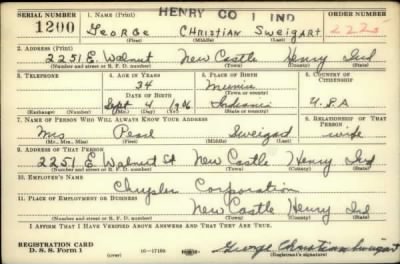 HENRY CO 1 IND
SERIAL NUMBER 1. NAME (Print) ORDER NUMBER
1200 George Christian Sweigart 2223
(First) (Middle) (Last)
2. ADDRESS (Print)
2251 E. Walnut New Castle Henry Ind
(Number and street or R. F. D. number) (Town) (County) (State)
3. TELEPHONE 4. AGE IN YEARS 5. PLACE OF BIRTH 6. COUNTRY OF CITIZENSHIP
34 Muncie
DATE OF BIRTH (Town or county)
Sept 4 1906 Indiana U.S.A
(Exchange) (Number) (Mo.) (Day) (Yr.) (State or country)
7. NAME OF PERSON WHO WILL ALWAYS KNOW YOUR ADDRESS 8. RELATIONSHIP OF THAT PERSON
Mrs Pearl Sweigart wife
(Mr., Mrs., Miss) (First) (Middle) (Last)
9. ADDRESS OF THAT PERSON
2251 E. Walnut St New Castle Henry Ind
(Number and street or R. F. D. number) (Town) (County) (State)
10. EMPLOYER'S NAME
Chrysler Corporation
11. PLACE OF EMPLOYMENT OR BUSINESS
New Castle Henry Ind
(Number and street or R. F. D. number) (Town) (County) (State)
I AFFIRM THAT I HAVE VERIFIED ABOVE ANSWERS AND THAT THEY ARE TRUE.
REGISTRATION CARD
D. S. S. Form 1 (over) 16-17105 George Christian Sweigart
(Registrant's signature)